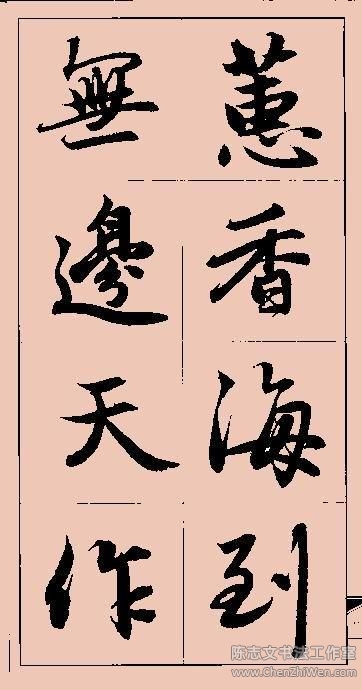 蕙香海到
無邊天作
陈志文书法工作室
www.ChenZhiWen.com